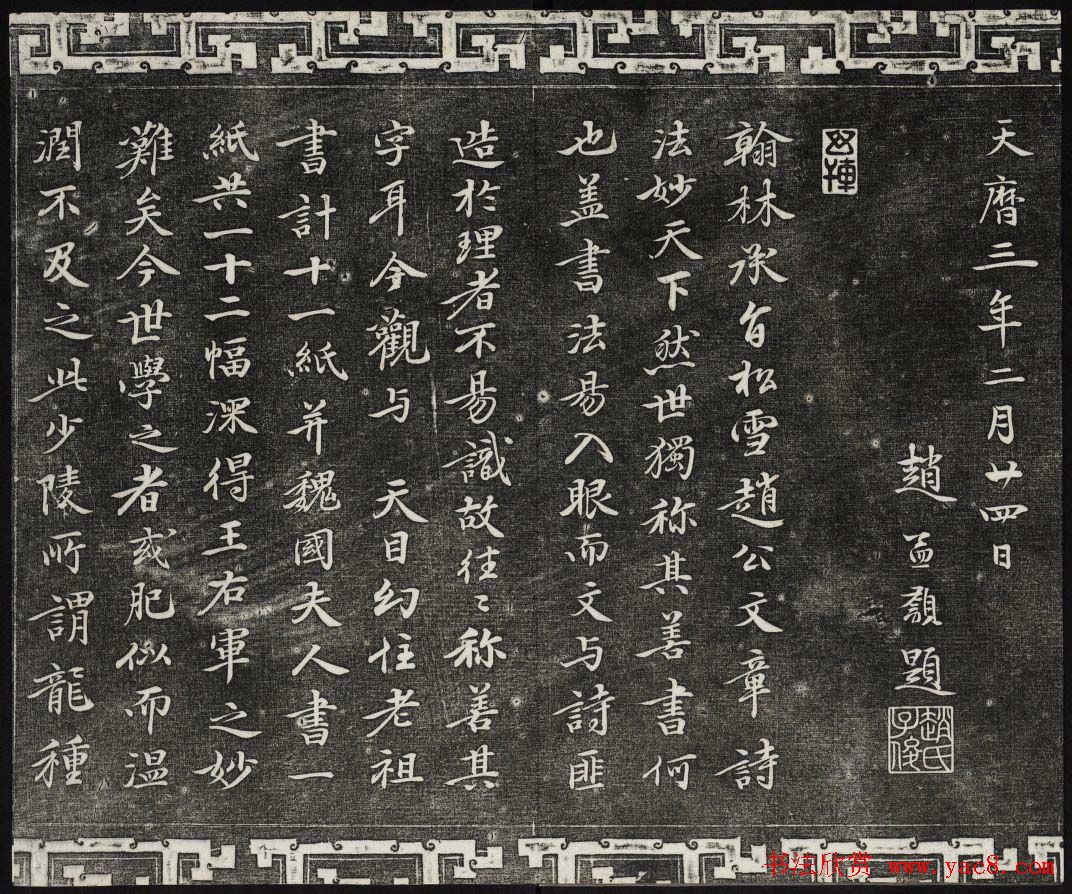 天曆三年二月廿四日
趙孟籲題
趙氏子俊
翰林承旨松雪趙公文章詩
法妙天下然世獨称其善書何
也盖書法易入眼而文与詩匪
造於理者不易識故往〻称善其
字耳今觀与 天目幻住老祖
書計十一紙并魏國夫人書一
紙共一十二幅深得王右軍之妙
難矣今世學之者或肥似而温
潤不及之此少陵所謂龍種
书法欣赏 www.yac8.com